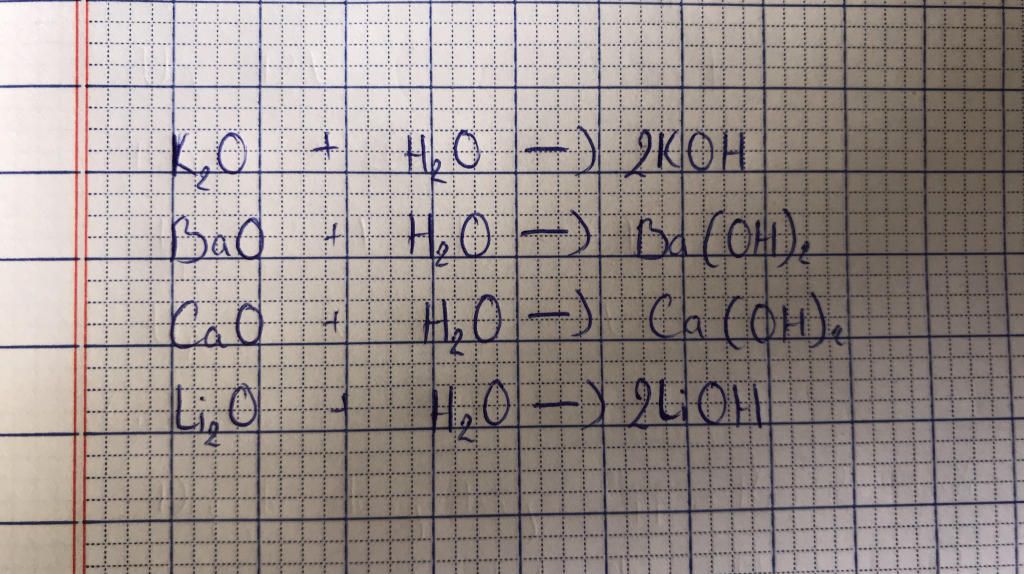 K₂O + H₂O —) 2KOH
BaO + H₂O —) Ba(OH)₂
CaO + H₂O —) Ca(OH)₂
Li₂O + H₂O —) 2LiOH